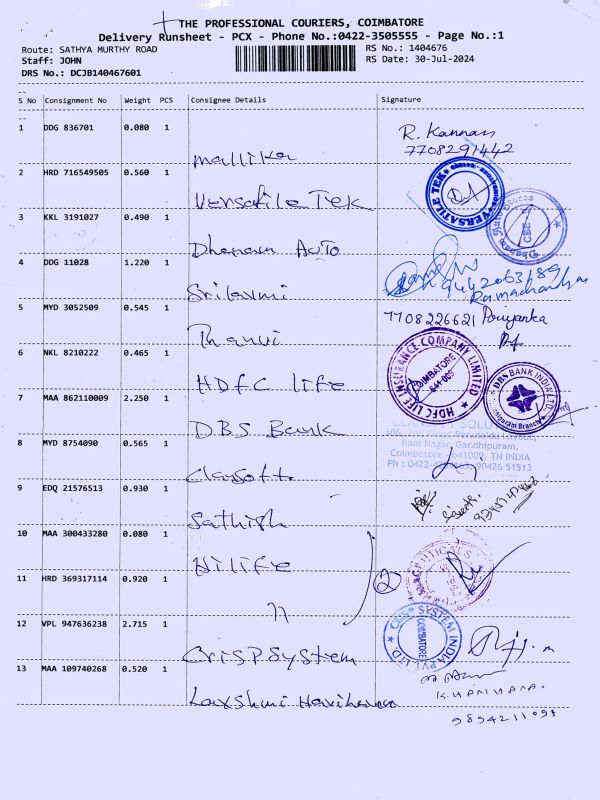 THE PROFESSIONAL COURIERS, COIMBATORE
Delivery Runsheet - PCX - Phone No.:0422-3505555 - Page No.:1
Route: SATHYA MURTHY ROAD RS No.: 1404676
Staff: JOHN RS Date: 30-Jul-2024
DRS No.: DCJB140467601
S No Consignment No Weight PCS Consignee Details Signature
1 DDG 836701 0.080 1 Mallika R. Kannan
7708291442
2 HRD 716549505 0.560 1 Versatile Tek VERSATILE TEK
3 KKL 3191027 0.490 1 Dhanam Auto
4 DDG 11028 1.220 1 Srilaxmi 9442063189
Ramachandran
5 MYD 3052509 0.545 1 Thanvi 7708226621 Poriyanka
6 NKL 8210222 0.465 1 HDFC life HDFC LIFE INSURANCE COMPANY LIMITED
COIMBATORE
641 009
7 MAA 862110009 2.250 1 DBS Bank DBS BANK INDIA LTD.
Branch
Ram Nagar, Gandhipuram,
Coimbatore - 641009. TN INDIA
90426 51513
8 MYD 8754090 0.565 1
9 EDQ 21576513 0.930 1 Sathish
10 MAA 300433280 0.080 1 Hilife
11 HRD 369317114 0.920 1 " 2
12 VPL 947636238 2.715 1 Crisp System SYSTEM INDIA PVT. LTD.
COIMBATORE
13 MAA 109740268 0.520 1 Laxshmi Hariharan K. HARIHARA.
9894211098